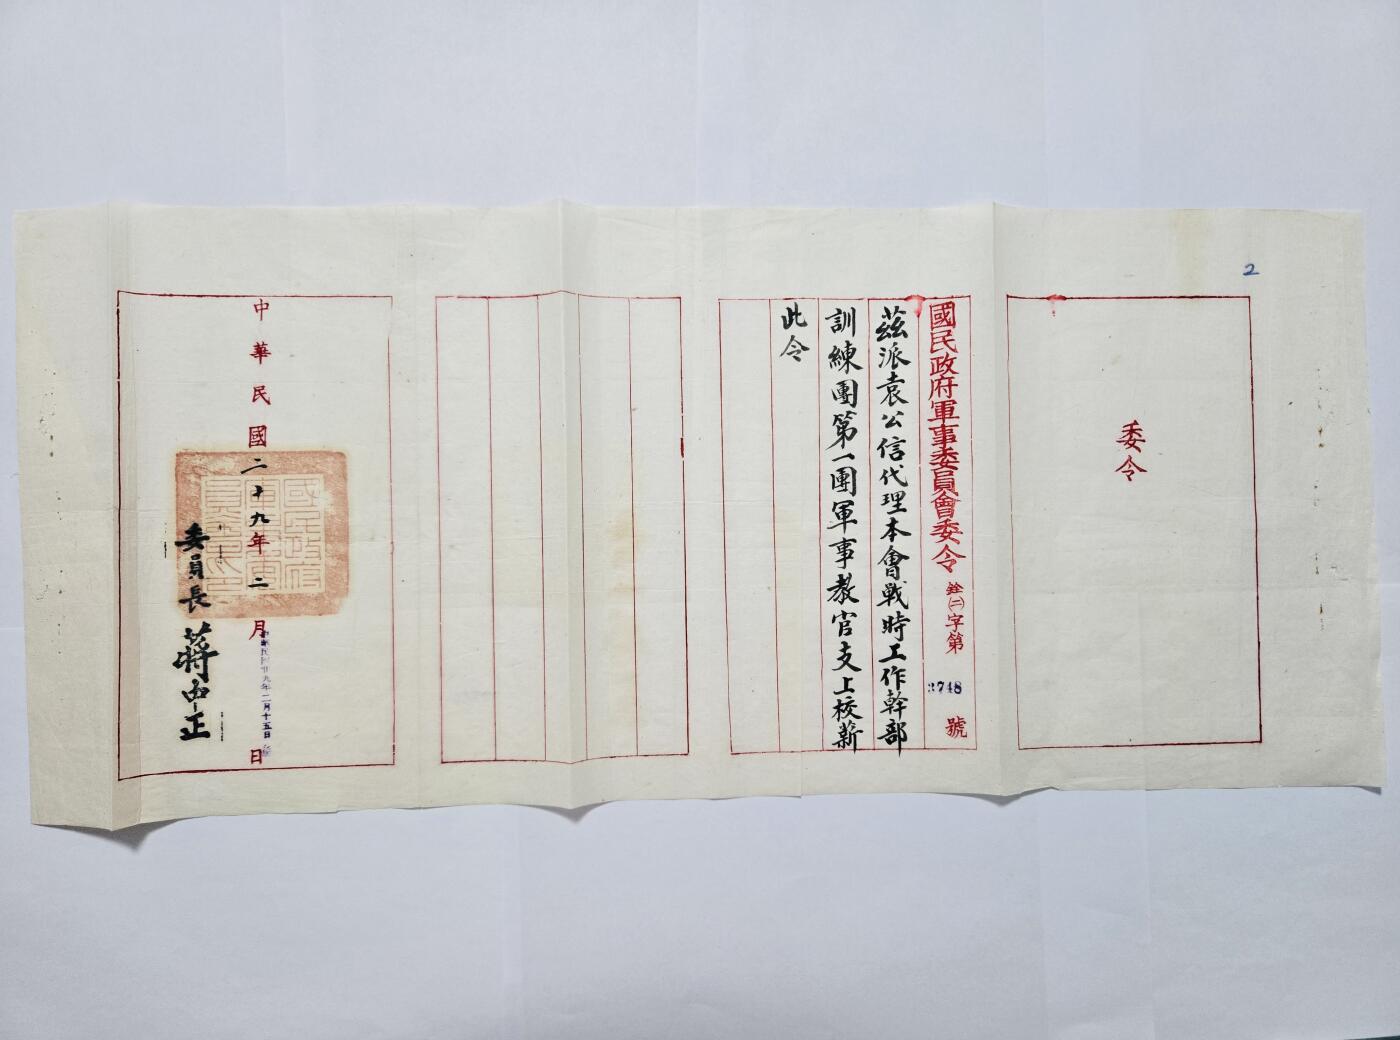 2
委令
國民政府軍事委員會委令 銓㈡字第 3748 號
茲派袁公信代理本會戰時工作幹部
訓練團第一團軍事教官支上校薪
此令
中華民國二十九年二月 日
中華民國廿九年二月十五日
委員長 蔣中正